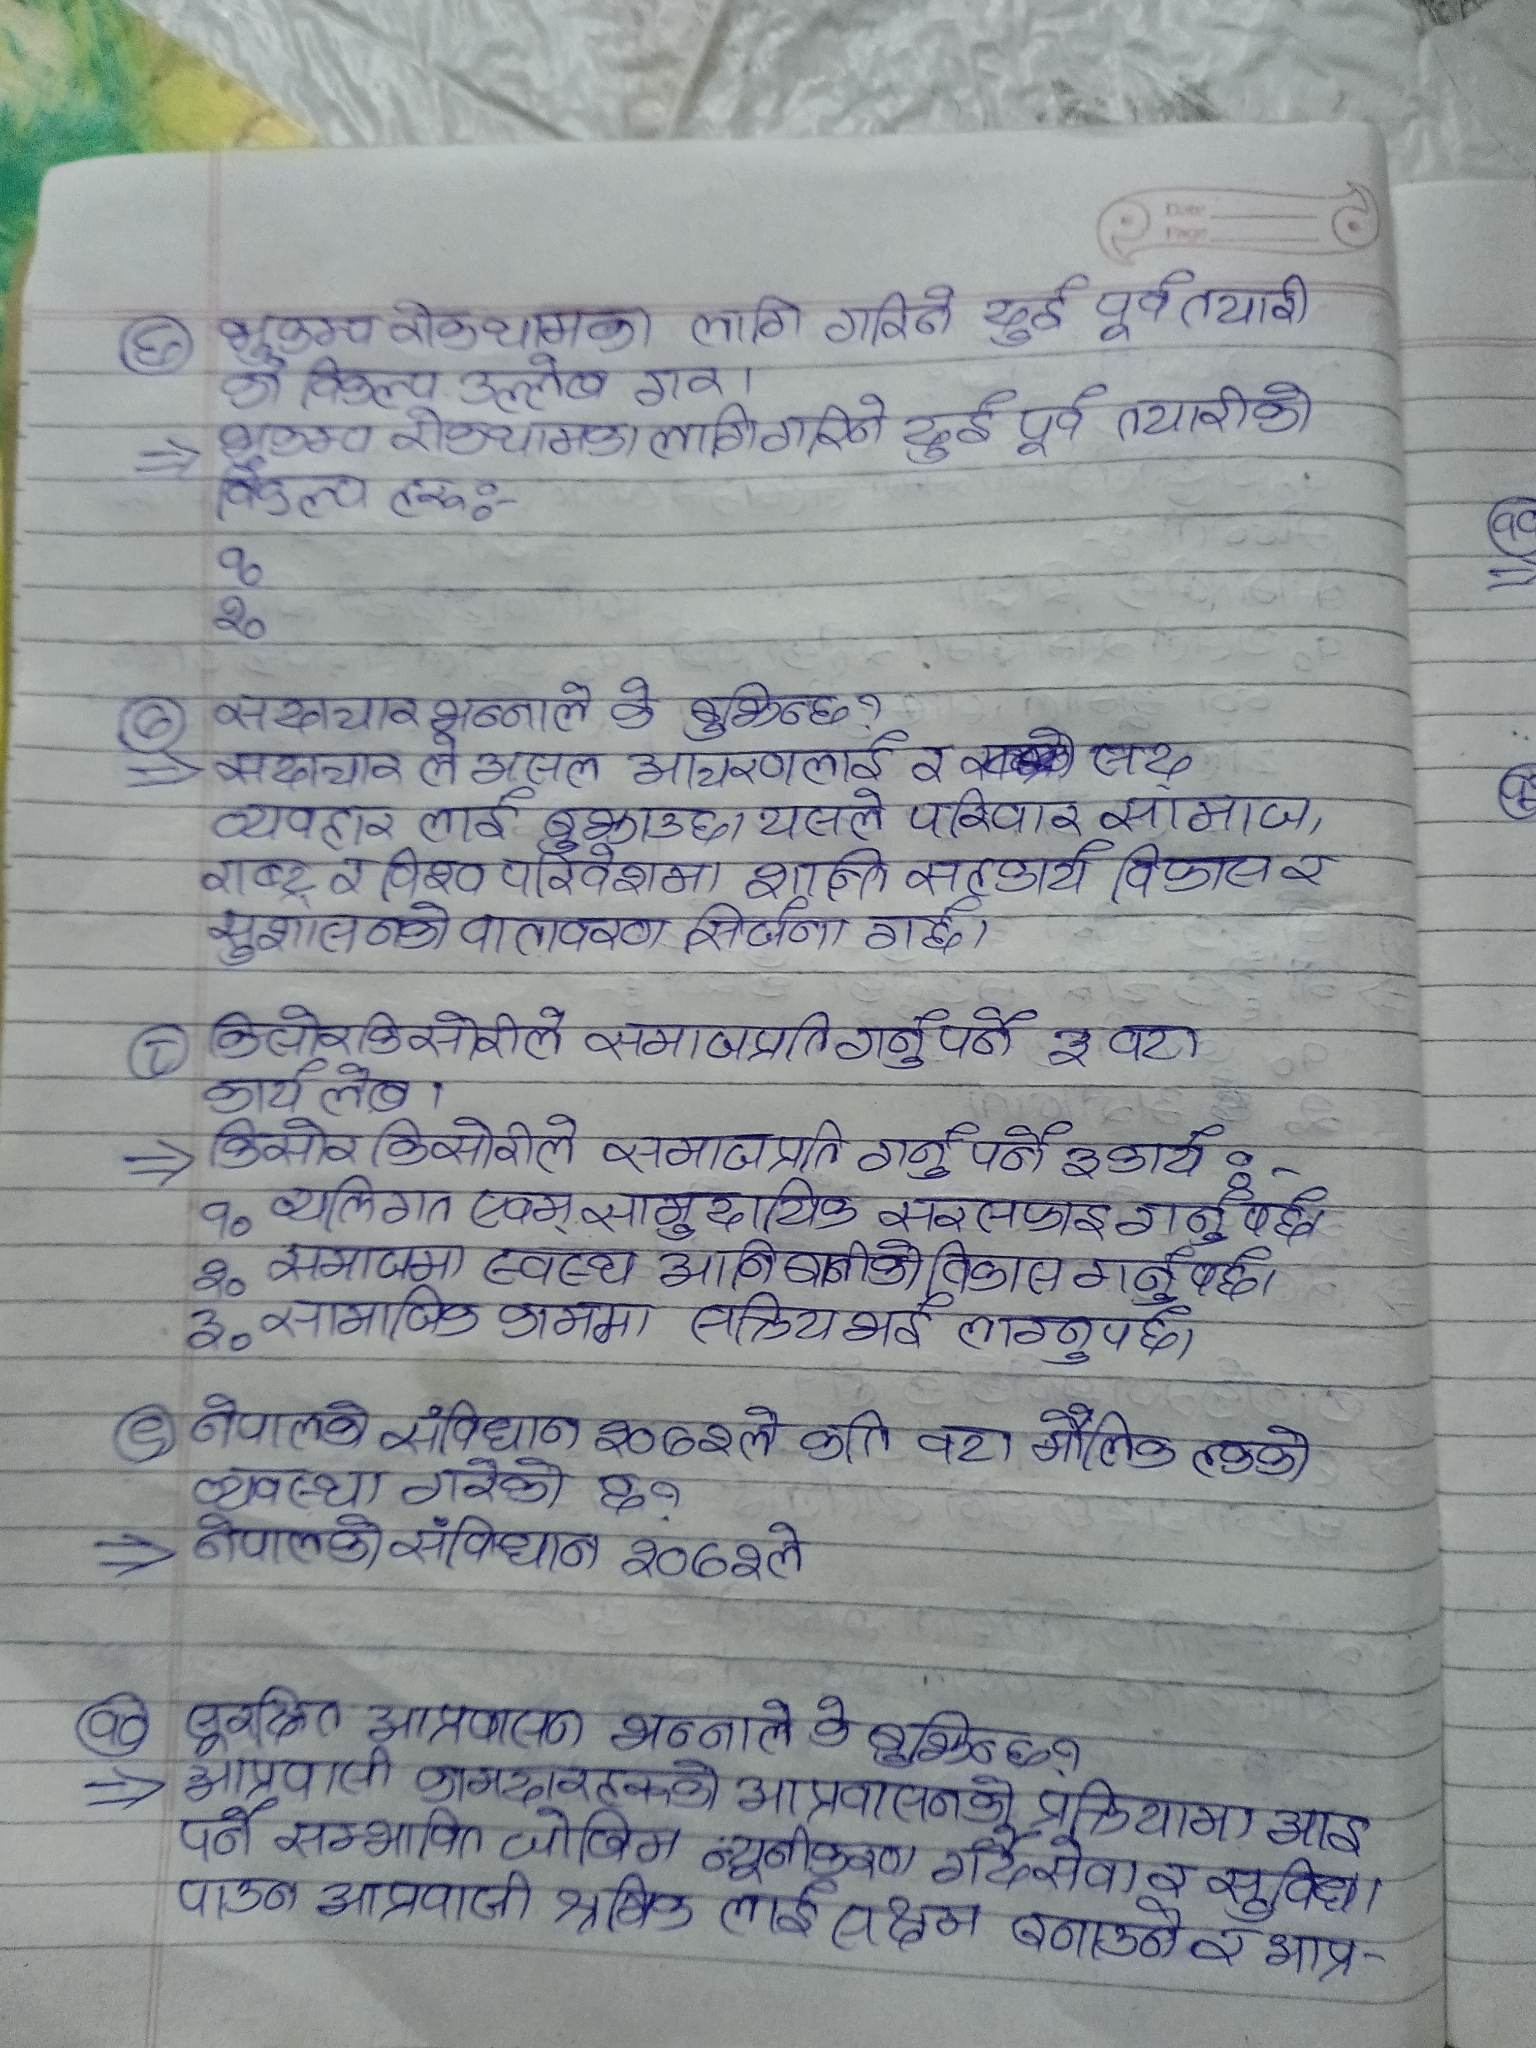 Date
Page
६ भुकम्प रोकथामका लागि गरिने दुई पूर्व तयारी
को विकल्प उल्लेख गर।
⇒ भुकम्प रोकथामका लागि गरिने दुई पूर्व तयारीको
विकल्प हरू :-
१.
२.
७ सदाचार भन्नाले के बुझिन्छ?
⇒ सदाचार ले असल आचरणलाई र सद
व्यवहार लाई बुझाउछ। यसले परिवार सामाज,
राष्ट्र र विश्व परिवेशमा शान्ति सहकार्य विकास र
सुशासनको वातावरण सिर्जना गर्छ।
८ किसोर किसोरीले समाजप्रति गर्नु पर्ने ३ वटा
कार्य लेख।
⇒ किसोर किसोरीले समाजप्रति गर्नु पर्ने ३ कार्य :-
१. व्यक्तिगत एवम् सामुदायिक सरसफाइ गर्नु पर्छ।
२. समाजमा स्वस्थ आनिबानीको विकास गर्नु पर्छ।
३. सामाजिक काममा सक्रिय भई लाग्नु पर्छ।
९ नेपालको संविधान २०७२ले कति वटा मौलिक हकको
व्यवस्था गरेको छ?
⇒ नेपालको संविधान २०७२ले
१० सुरक्षित आप्रवासन भन्नाले के बुझिन्छ?
⇒ आप्रवासी कामदारहरूको आप्रवासनको प्रक्रियामा आइ
पर्ने सम्भावित जोखिम न्यूनीकरण गर्दै सेवा र सुविधा
पाउन आप्रवासी श्रमिक लाई सक्षम बनाउने र आप्र-